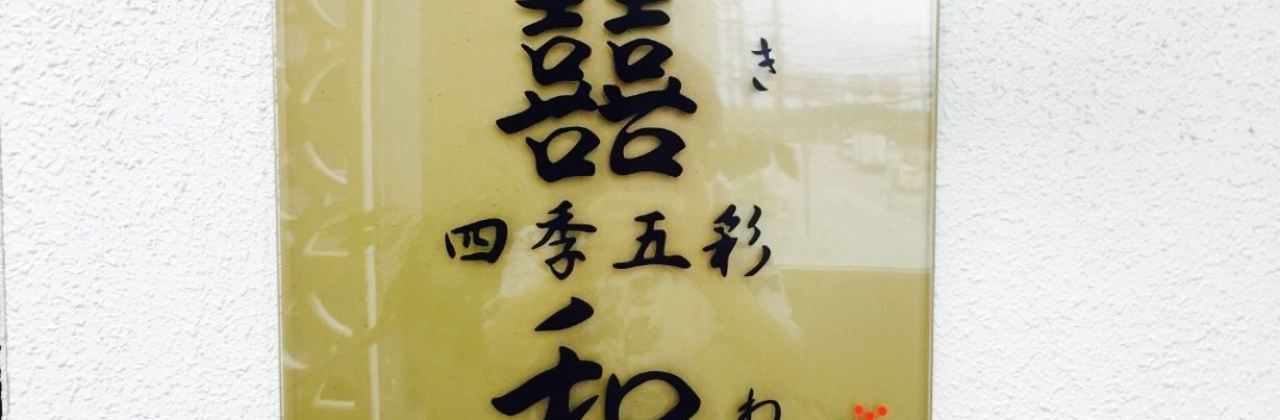 囍
き
四季五彩
和
わ